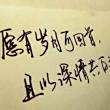 愿有岁月可回首，
且以深情共